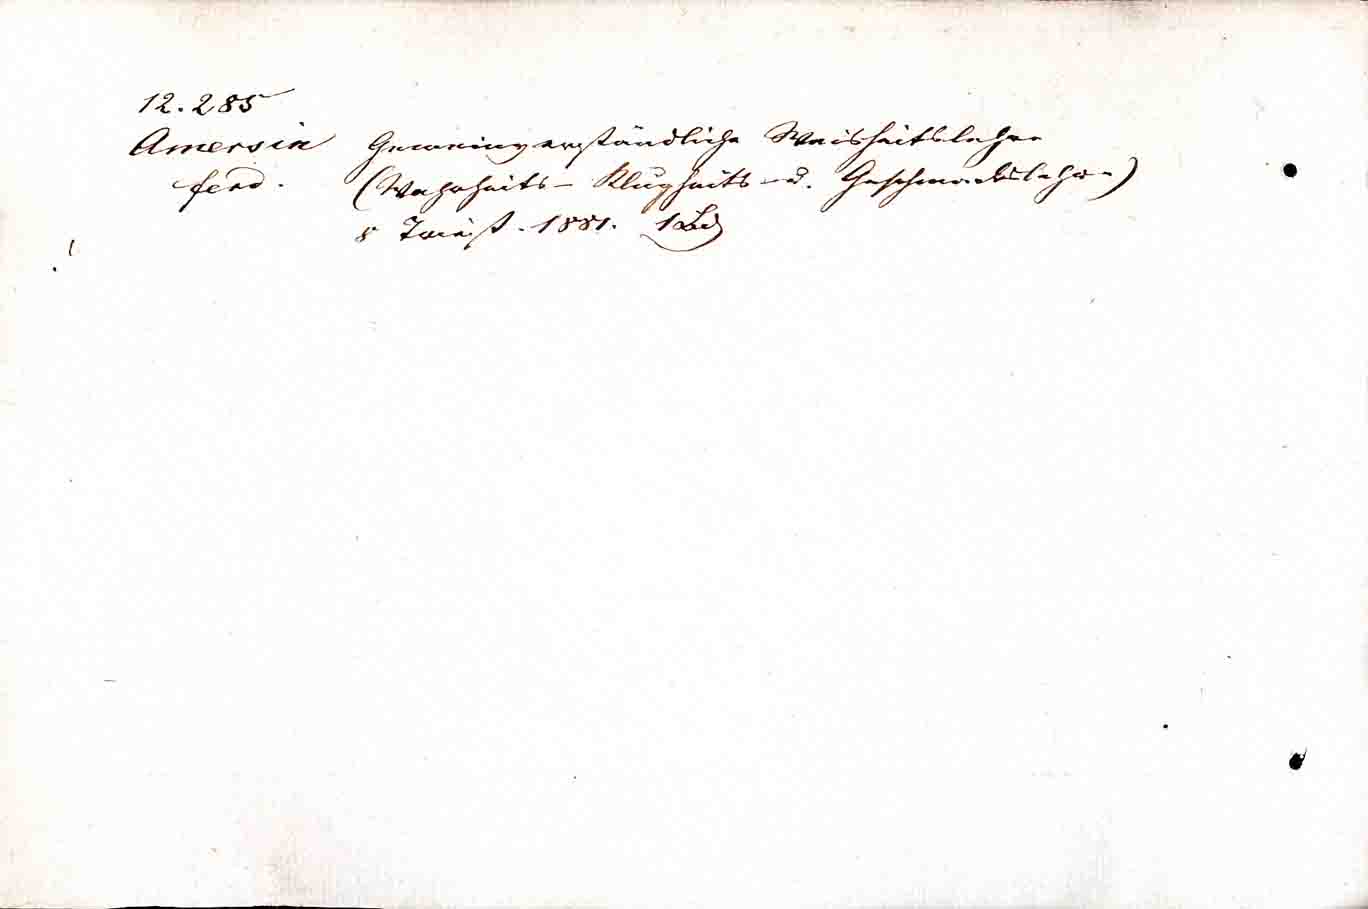 12.285
Amersin Gemeinverständliche Weisheitslehre
Ferd. (Wahrheits- Klugheits- u. Geschmackslehre)
8 Triest. 1881. 1 Bd